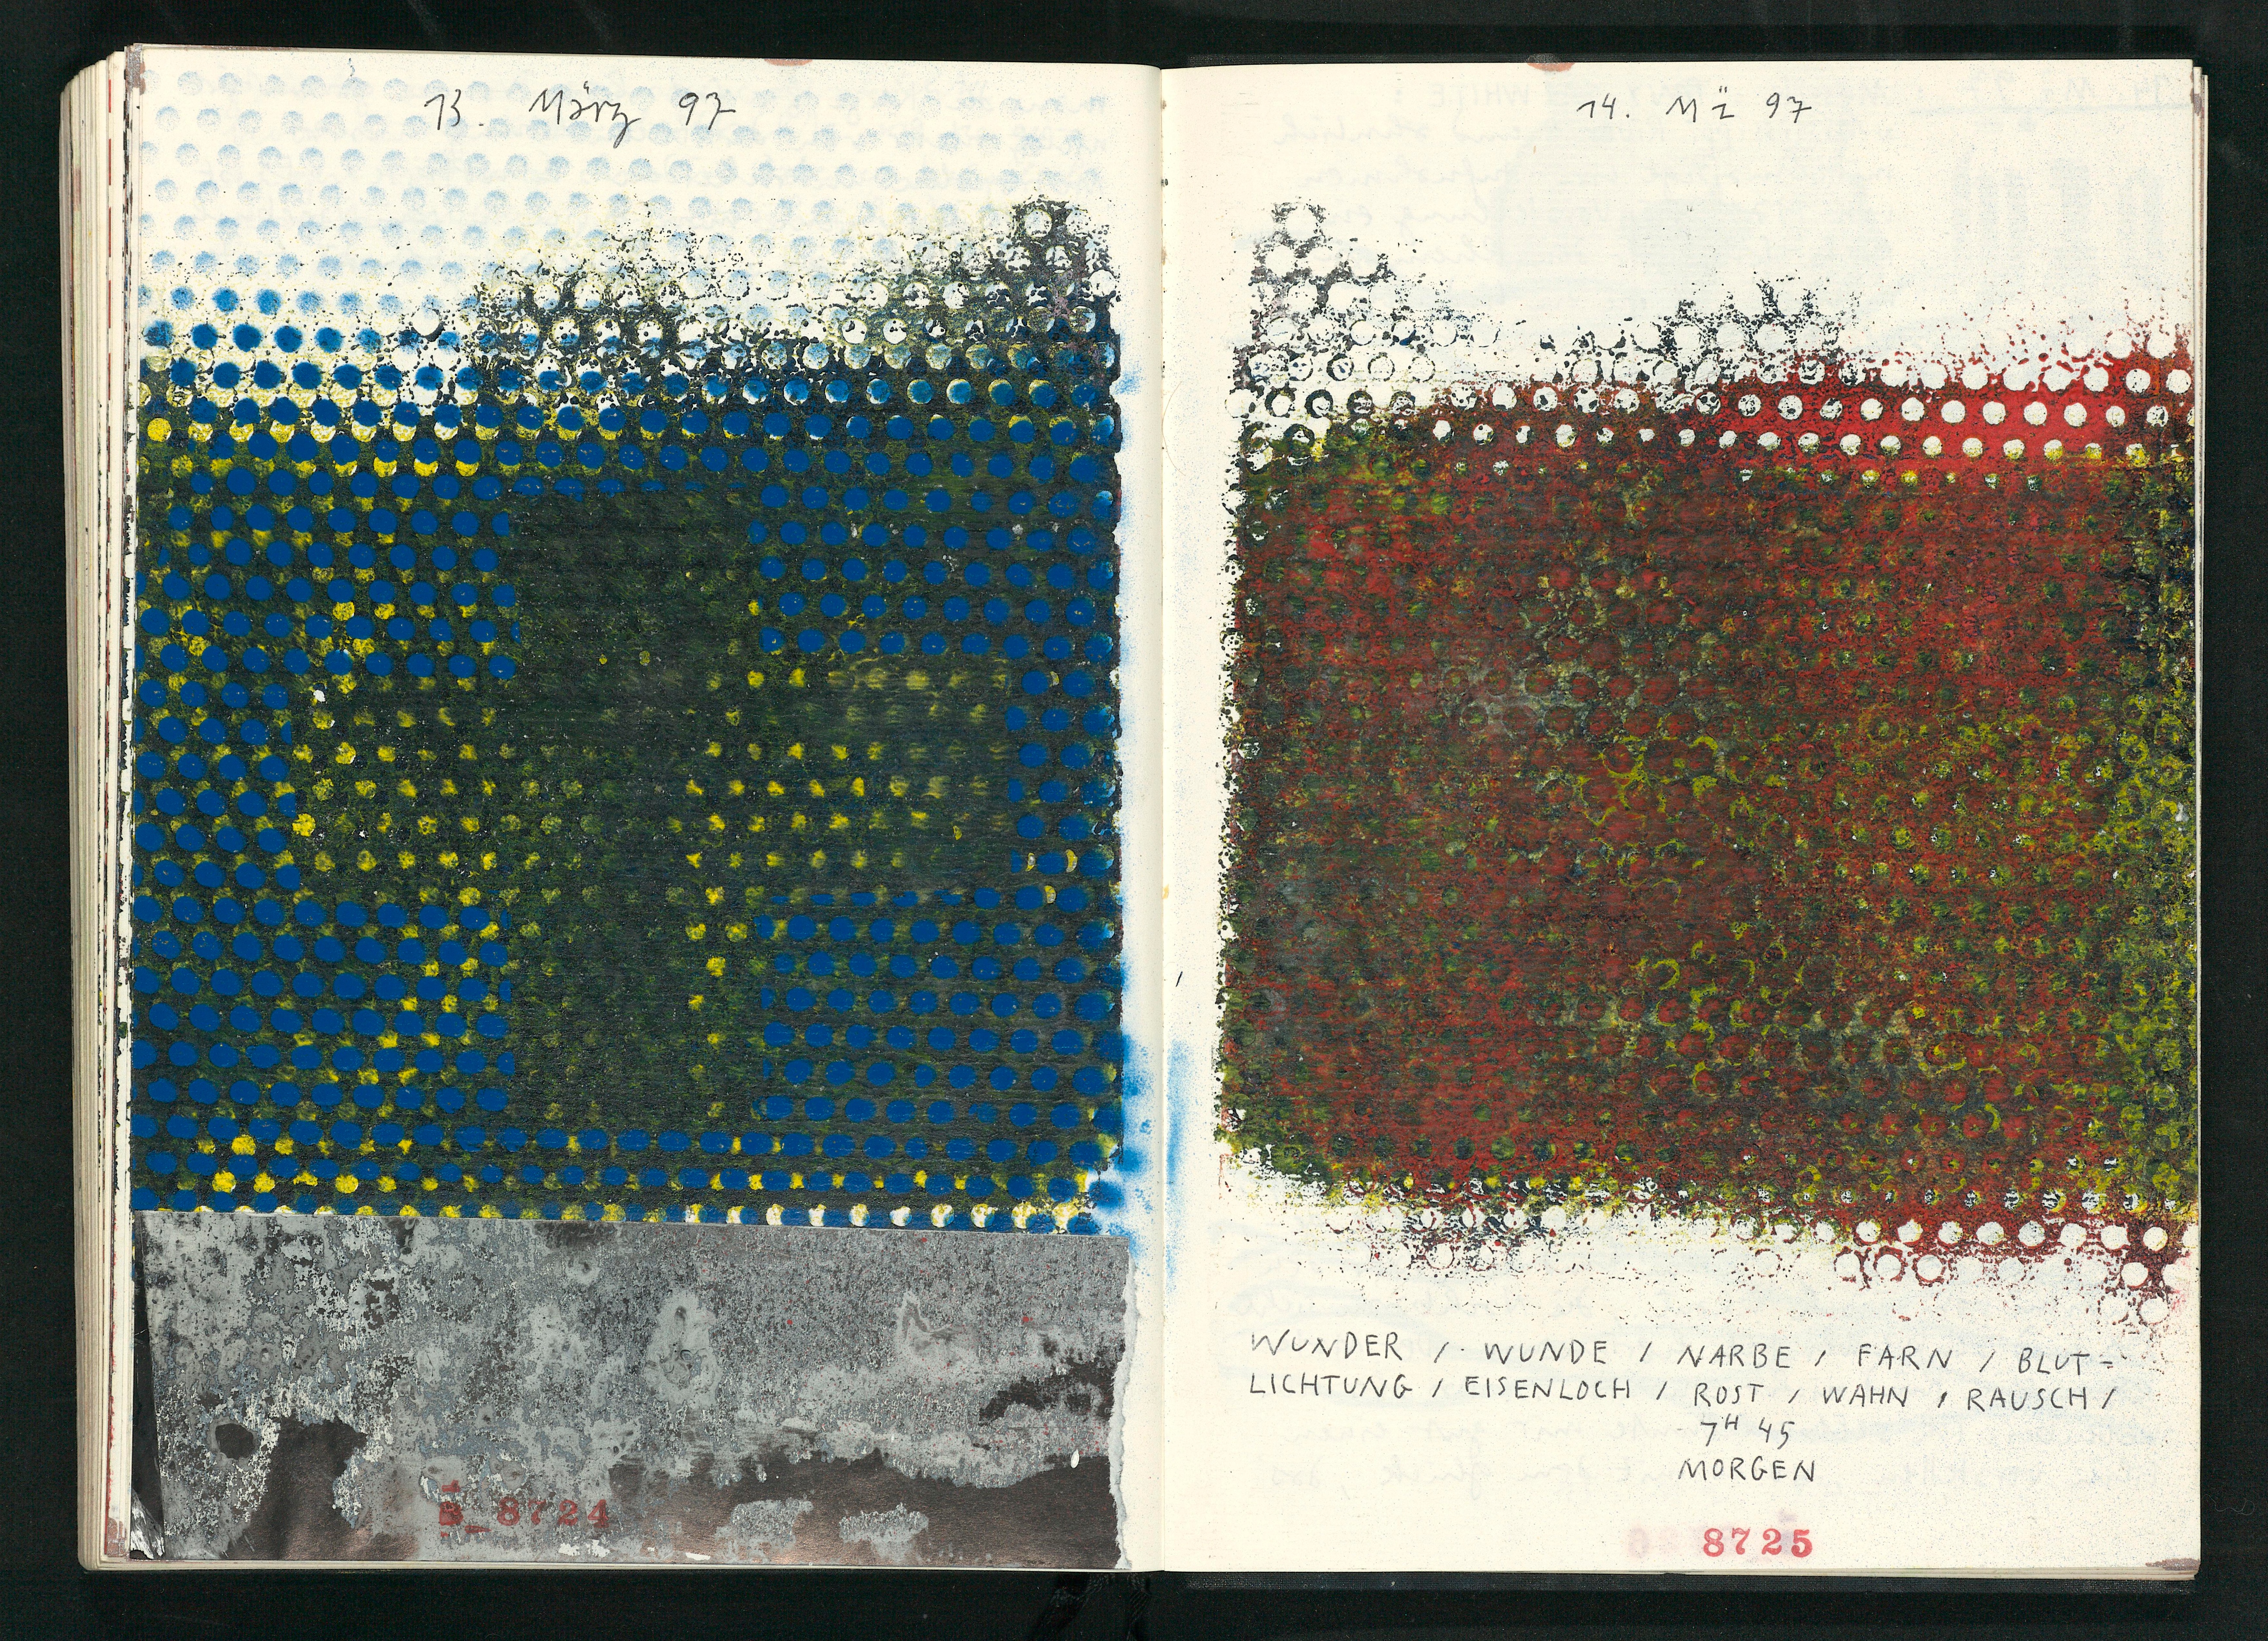 13. März 97
B_8724
14. Mz 97
WUNDER / WUNDE / NARBE / FARN / BLUT=
LICHTUNG / EISENLOCH / ROST / WAHN / RAUSCH /
7H 45
MORGEN
8725